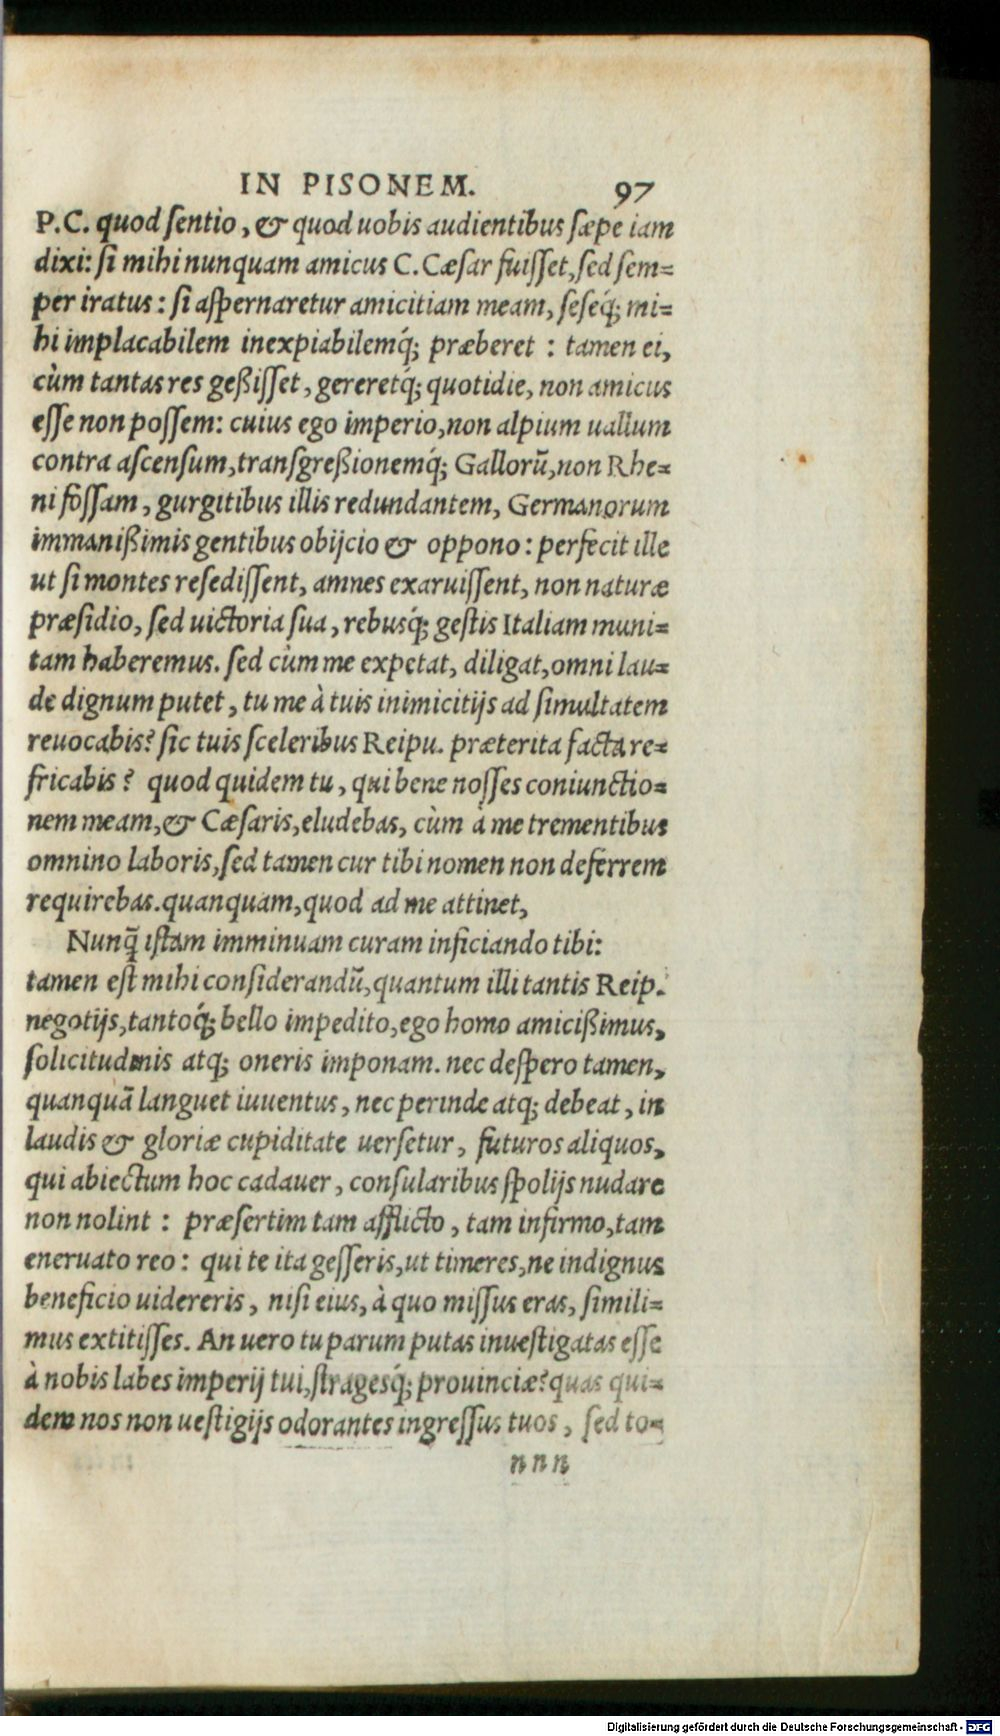 IN PISONEM. 97
P.C. quod ſentio, & quod uobis audientibus ſæpe iam
dixi: ſi mihi nunquam amicus C. Cæſar fuiſſet, ſed ſem=
per iratus: ſi aſpernaretur amicitiam meam, ſeſeq́; mi=
hi implacabilem inexpiabilemq́; præberet : tamen ei,
cùm tantas res geßiſſet, gereretq́; quotidie, non amicus
eſſe non poſſem: cuius ego imperio, non alpium uallum
contra aſcenſum, tranſgreßionemq́; Gallorũ, non Rhe=
ni foſſam, gurgitibus illis redundantem, Germanorum
immanißimis gentibus obijcio & oppono: perfecit ille
ut ſi montes reſediſſent, amnes exaruiſſent, non naturæ
præſidio, ſed uictoria ſua, rebusq́; geſtis Italiam muni=
tam haberemus. ſed cùm me expetat, diligat, omni lau=
de dignum putet, tu me à tuis inimicitijs ad ſimultatem
reuocabis? ſic tuis ſceleribus Reipu. præterita facta re=
fricabis? quod quidem tu, qui bene noſſes coniunctio=
nem meam, & Cæſaris, eludebas, cùm à me trementibus
omnino laboris, ſed tamen cur tibi nomen non deferrem
requirebas. quanquam, quod ad me attinet,
Nunq̃ iſtam imminuam curam inficiando tibi:
tamen eſt mihi conſiderandũ, quantum illi tantis Reip.
negotijs, tantoq́; bello impedito, ego homo amicißimus,
ſolicitudinis atq; oneris imponam. nec deſpero tamen,
quanquã languet iuuentus, nec perinde atq; debeat, in
laudis & gloriæ cupiditate uerſetur, futuros aliquos,
qui abiectum hoc cadauer, conſularibus ſpolijs nudare
non nolint : præſertim tam afflicto, tam infirmo, tam
eneruato reo: qui te ita geſſeris, ut timeres, ne indignus
beneficio uidereris, niſi eius, à quo miſſus eras, ſimili=
mus extitiſſes. An uero tu parum putas inueſtigatas eſſe
à nobis labes imperij tui, ſtragesq́; prouinciæ? quas qui=
dem nos non ueſtigijs odorantes ingreſſus tuos, ſed to=
nnn
Digitalisierung gefördert durch die Deutsche Forschungsgemeinschaft - DFG